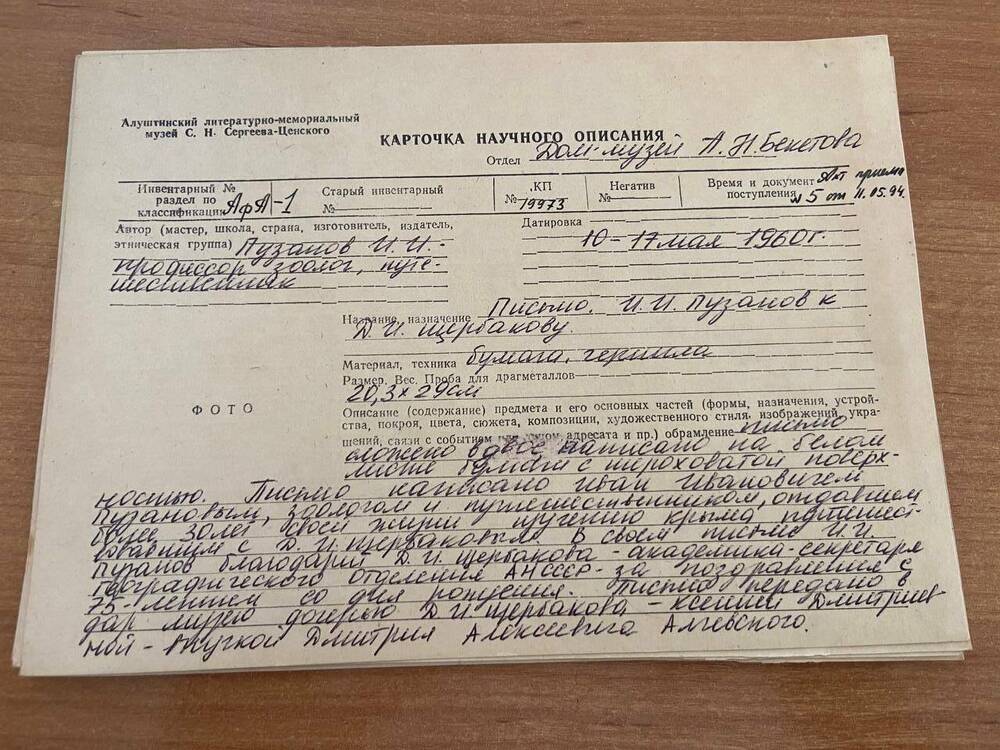 Алуштинский литературно-мемориальный
музей С. Н. Сергеева-Ценского
КАРТОЧКА НАУЧНОГО ОПИСАНИЯ
Отдел Дом-музей А. Н. Бекетова
Инвентарный №
раздел по
классификации АфА-1
Старый инвентарный
№
КП
№ 19973
Негатив
№
Время и документ Акт приема
поступления №5 от 11.05.94.
Автор (мастер, школа, страна, изготовитель, издатель,
этническая группа) Пузанов И. И. -
профессор зоолог, путе-
шественник
Датировка
10-17 мая 1960г.
Название, назначение Письмо. И. И. Пузанов к
Д. И. Щербакову.
Материал, техника бумага, чернила
Размер. Вес. Проба для драгметаллов
20,3 х 29см
ФОТО
Описание (содержание) предмета и его основных частей (формы, назначения, устрой-
ства, покроя, цвета, сюжета, композиции, художественного стиля, изображений, укра-
шений, связи с событием адресата и пр.) обрамление письмо
сложено вдвое написано на белом
листе бумаги с шероховатой поверх-
ностью. Письмо написано Иван Ивановичем
Пузановым, зоологом и путешественником, отдавшем
более 30 лет своей жизни изучению Крыма, путешест-
вовавшим с Д. И. Щербаковым. В своем письме И. И.
Пузанов благодарит Д. И. Щербакова - академика-секретаря
географического отделения АНСССР - за поздравления с
75-летием со дня рождения. Письмо передано в
дар музею дочерью Д. И. Щербакова - Ксенией Дмитриев-
ной - внучкой Дмитрия Алексеевича Алчевского.